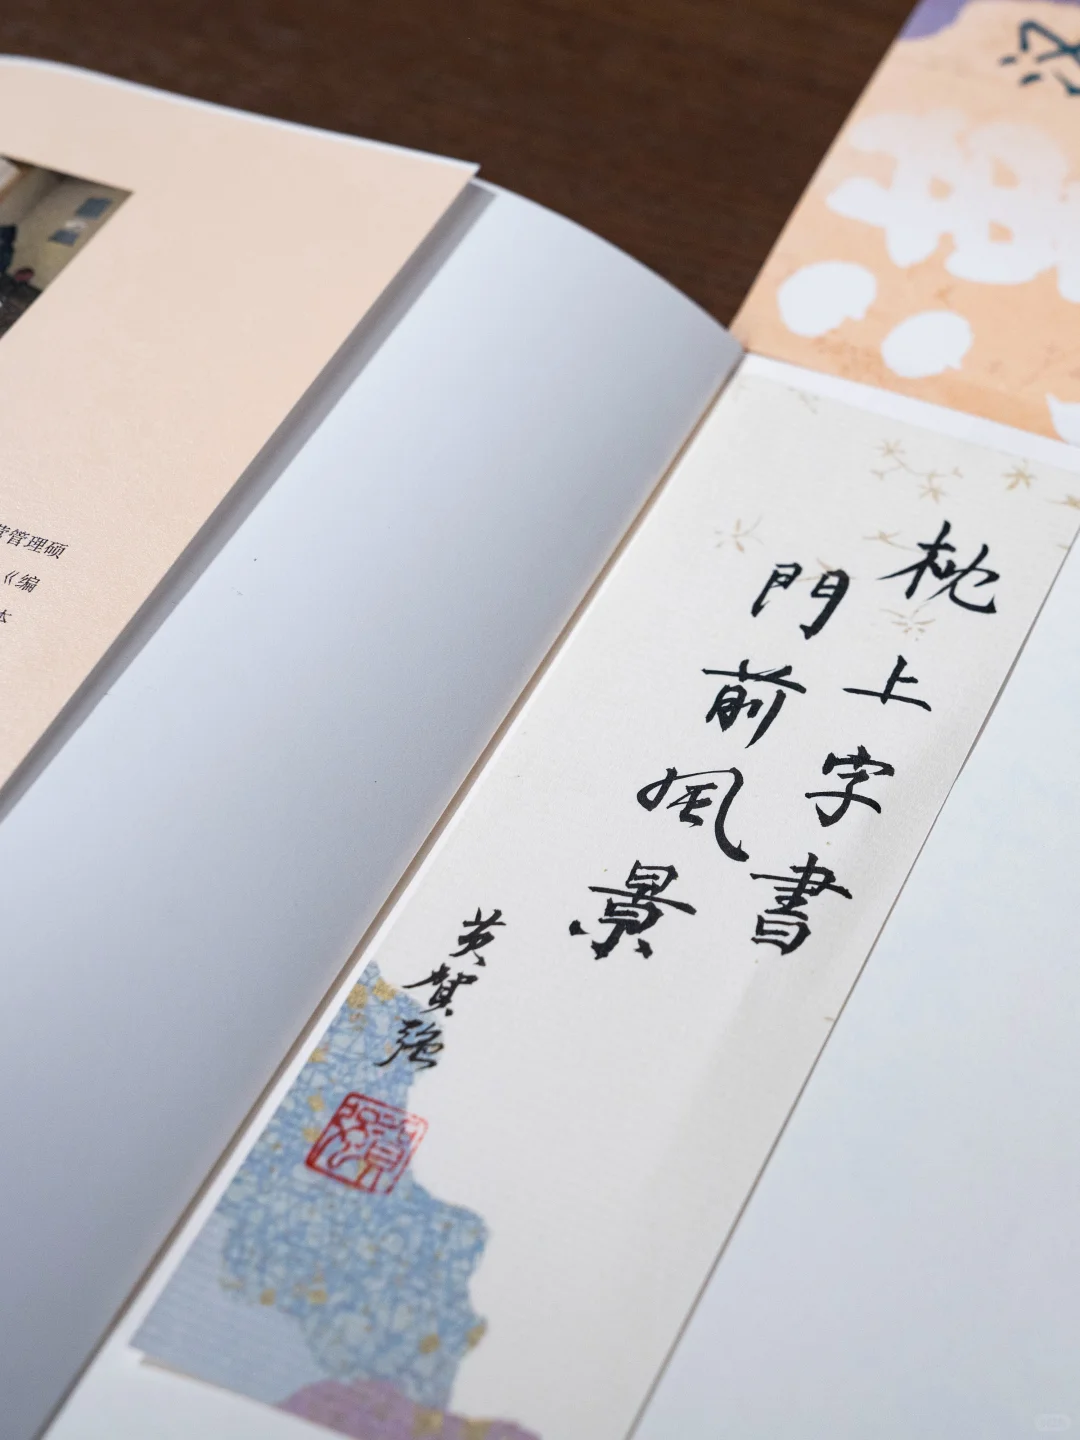 枕上字書
門前風景
英賀強
管理硕
《编
本